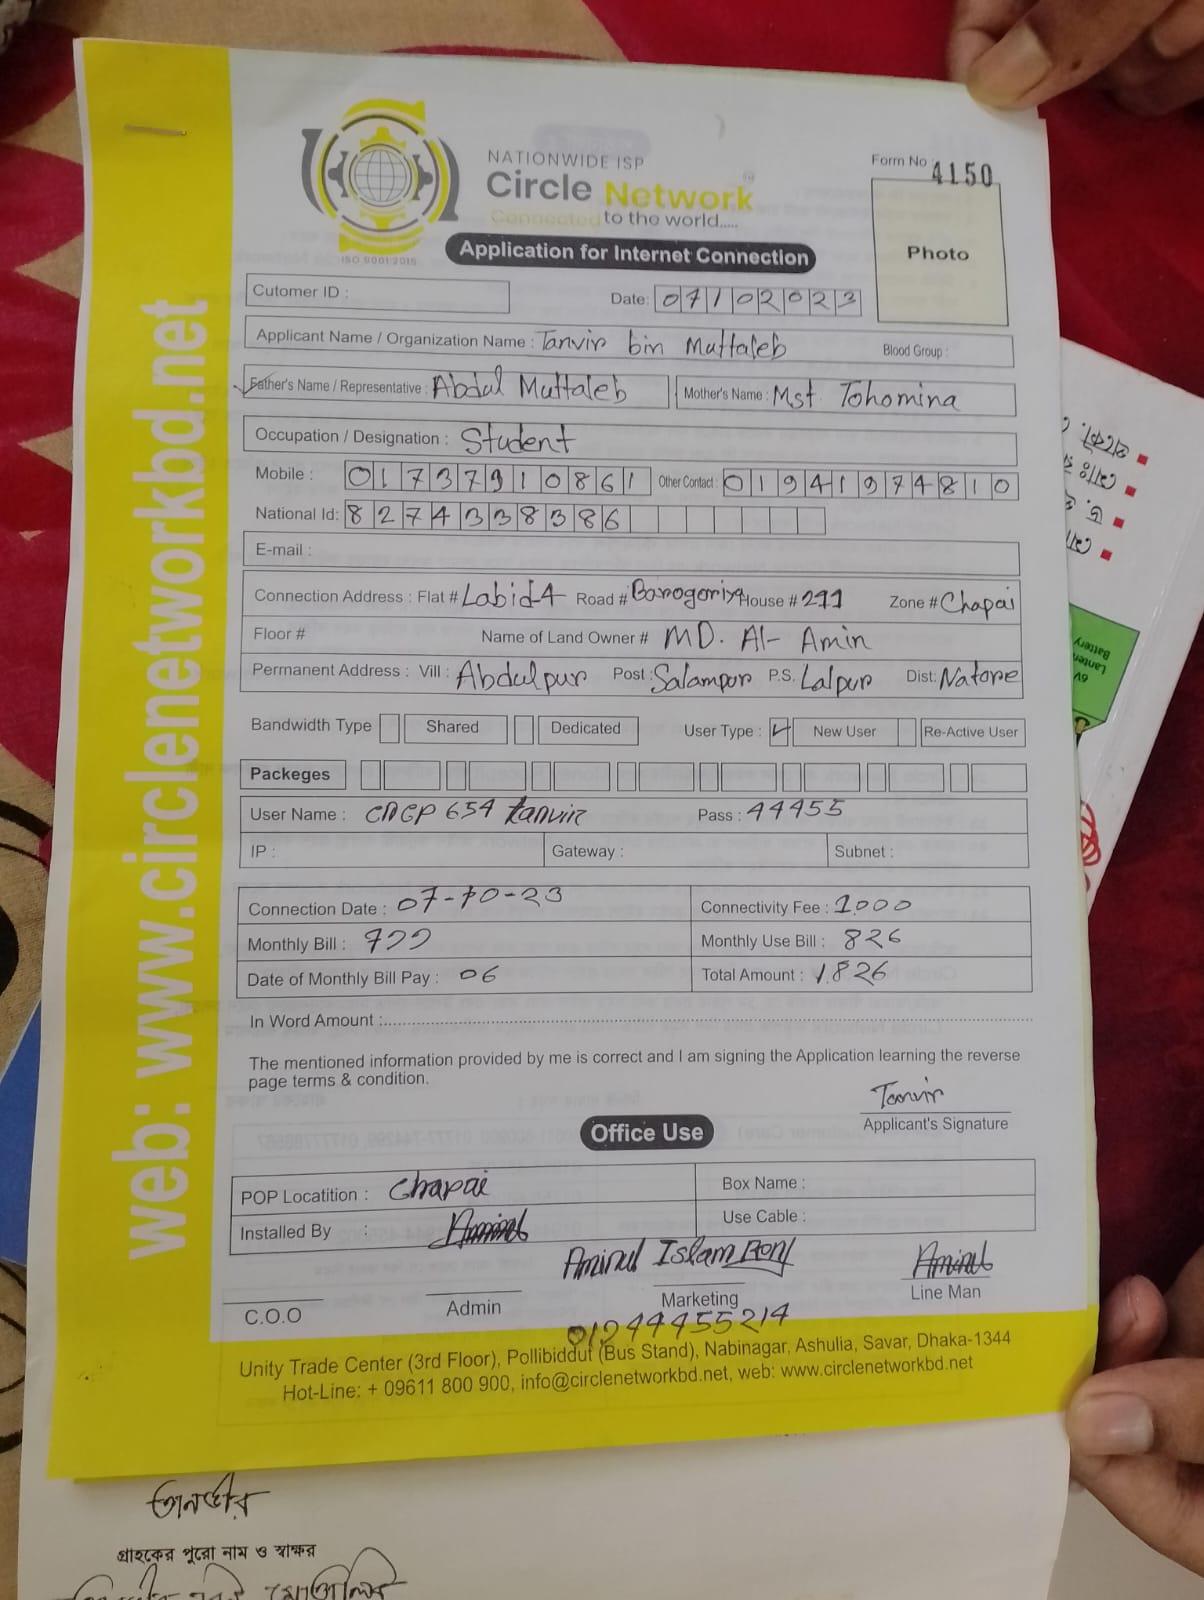 NATIONWIDE ISP
Circle Network
Connected to the world.....
ISO 9001:2015
Form No 4150
Photo
Application for Internet Connection
Cutomer ID :
Date: 07102023
Applicant Name / Organization Name : Tanvir bin Muttaleb Blood Group :
Father's Name / Representative : Abdul Muttaleb Mother's Name : Mst. Tohomina
Occupation / Designation : Student
Mobile : 01737910861 Other Contact : 01941974810
National Id: 8274338386
E-mail :
Connection Address : Flat # Labid-4 Road # Barogoriya House # 211 Zone # Chapai
Floor # Name of Land Owner # MD. Al- Amin
Permanent Address : Vill : Abdulpur Post : Salampur P.S. Lalpur Dist: Natore
Bandwidth Type Shared Dedicated User Type : New User Re-Active User
Packeges
User Name : Pass : 44455
IP : Gateway : Subnet :
Connection Date : 07-10-23 Connectivity Fee : 1000
Monthly Bill : Monthly Use Bill : 826
Date of Monthly Bill Pay : 06 Total Amount : 1826
In Word Amount :
The mentioned information provided by me is correct and I am signing the Application learning the reverse
page terms & condition.
Tanvir
Applicant's Signature
Office Use
POP Locatition : Chapai Box Name :
Installed By : Aminul Use Cable :
Aminul Islam Aminul
C.O.O Admin Marketing Line Man
Unity Trade Center (3rd Floor), Pollibiddut (Bus Stand), Nabinagar, Ashulia, Savar, Dhaka-1344
Hot-Line: + 09611 800 900, info@circlenetworkbd.net, web: www.circlenetworkbd.net
web: www.circlenetworkbd.net
তানভীর
গ্রাহকের পুরো নাম ও স্বাক্ষর
6V
Lantern
Battery